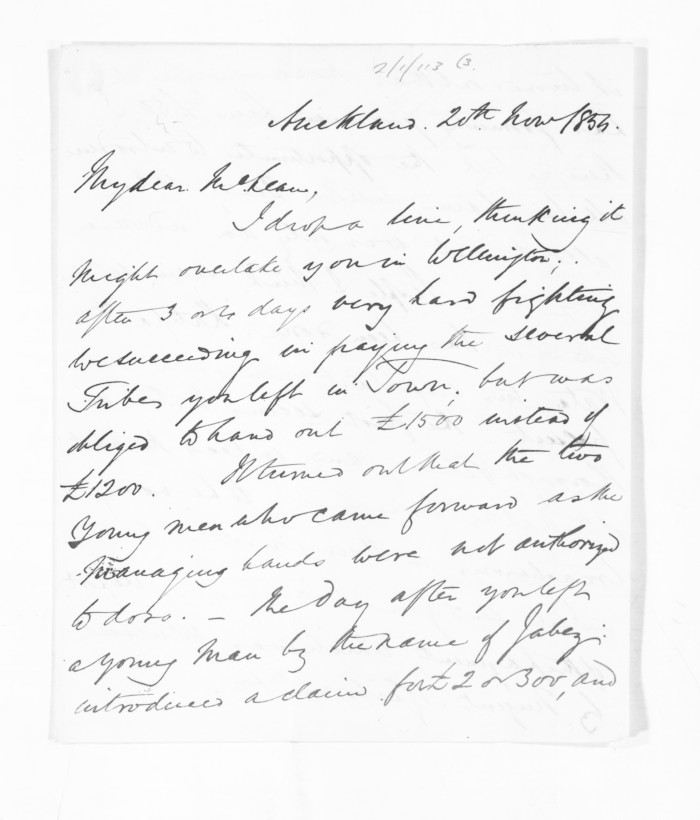 2/1/113 G3.
Auckland. 20th. Novr 1854.
My dear McLean,
I drop a line, thinking it
might overtake you in Wellington;.
after 3 or 4 days very hard fighting
we succeeding in paying the several
Tribes you left in Town, but was
obliged to hand out £1500 instead of
£1200. It turned out that the two
young men who came forward as the
managing hands were not authorized
to do so. — The day after you left
a young man by the name of Jabez:
introduced a claim for £2 or 300, and
3